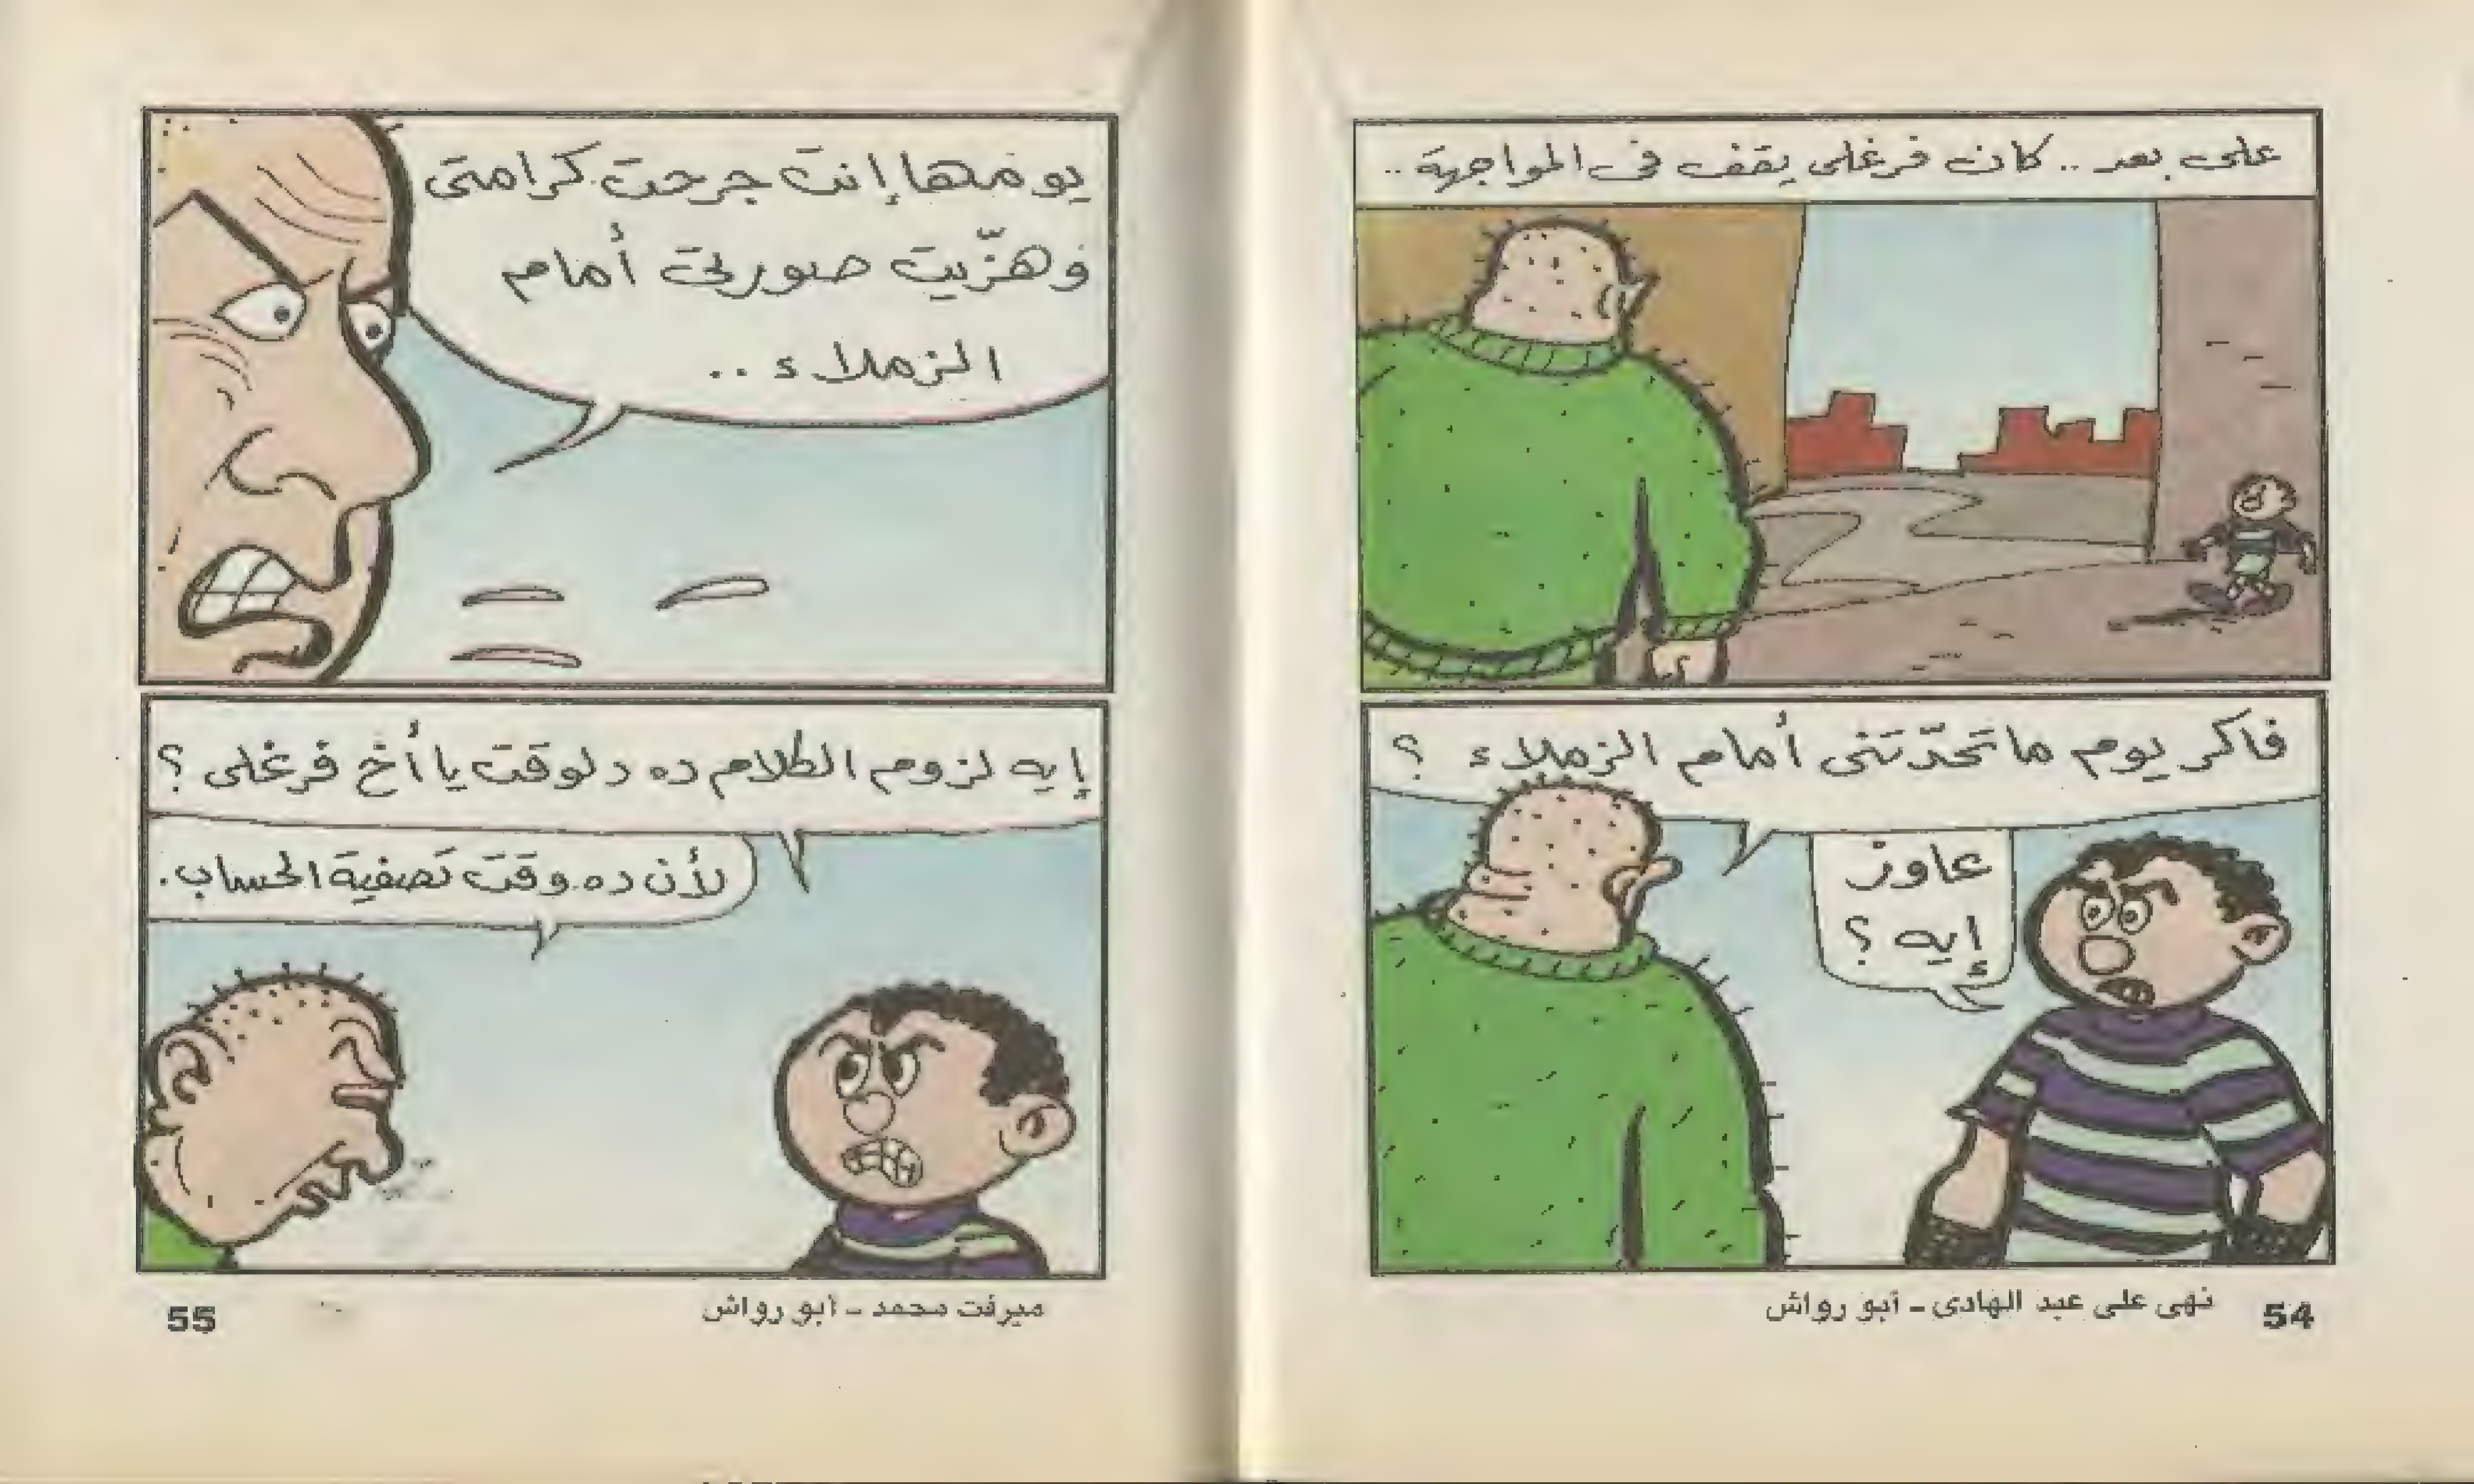 على بعد .. كان فرغلى يقف فى المواجهة ..
فاكر يوم ما تحدّتنى أمام الزملاء ؟
عاوز
إيه ؟
نهى على عبد الهادى - أبو رواش
54
يومها إنت جرحت كرامتى
وهزّيت صورتى أمام
الزملاء ..
إيه لزوم الكلام ده دلوقت يا أخ فرغلى ؟
لأن ده وقت تصفية الحساب .
ميرفت محمد - أبو رواش
55